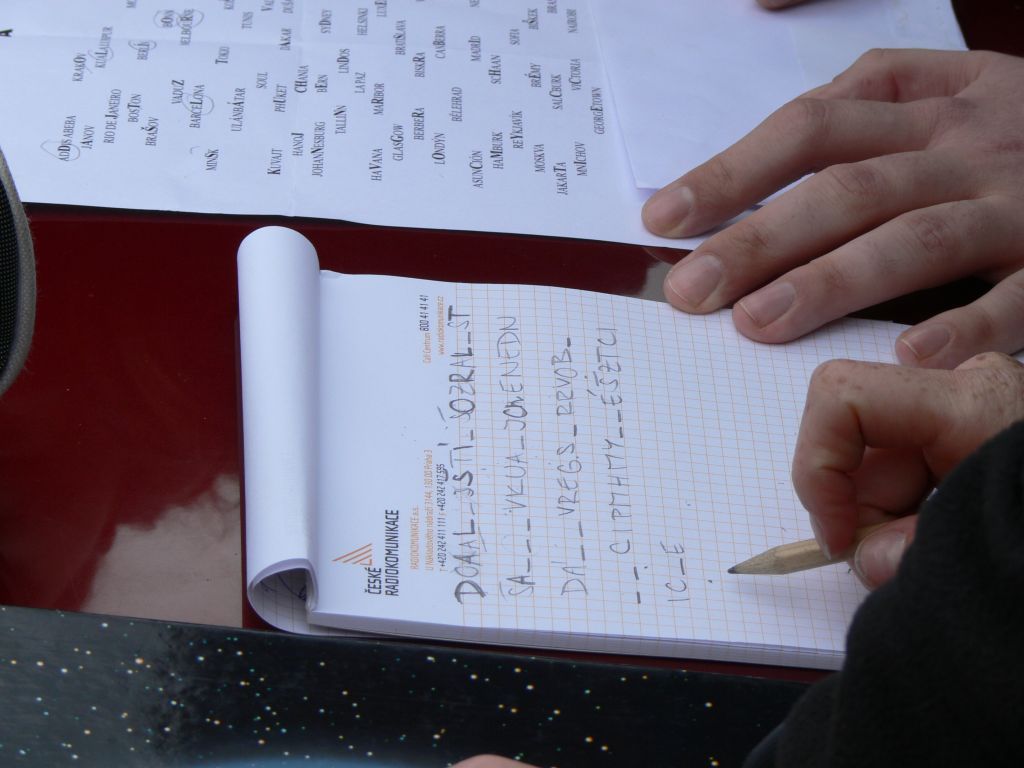 KRAKOV
KUALALUPUR
BERLÍN
BONN
MELBOURNE
TUNIS
TOKIO
DAKAR
SYDNEY
HELSINKI
BRATISLAVA
CANBERRA
BISKRA
MADRID
SOFIA
BIŠKEK
NAIROBI
ADDIS ABEBA
JÁNOV
RIO DE JANEIRO
BOSTON
BRAŠOV
VADUZ
BARCELONA
ULÁNBÁTAR
SOUL
PHUKET
CHANIA
BERN
LINDOS
LA PAZ
MARIBOR
BERBERA
BĚLEHRAD
SCHAAN
BRÉMY
SALCBURK
VICTORIA
GEORGETOWN
MINSK
KUVAJT
HANOJ
JOHANNESBURG
TALLINN
HAVANA
GLASGOW
LONDÝN
ASUNCIÓN
HAMBURK
REYKJAVÍK
MOSKVA
JAKARTA
MNICHOV
ČESKÉ
RADIOKOMUNIKACE
RADIOKOMUNIKACE a.s.
U Nákladového nádraží 3144, 130 00 Praha 3
T +420 242 411 111 F +420 242 417 595
Call Centrum 800 41 41 41
www.radiokomunikace.cz
DOAAL_JŠTÍ_SOZRAL_ST
DA_ _ _VREGS_RZVOB_
_ _ C IPMHMY_ _ ÉŠZTCI
IC_E